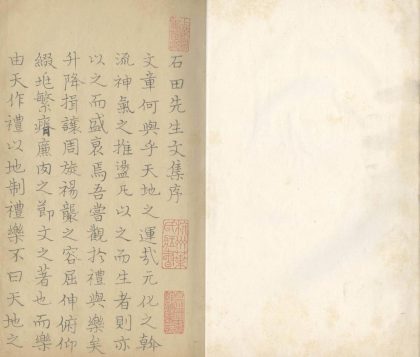 石田先生文集序
文章何與乎天地之運哉元化之斡
流神氣之推盪凡以之而生者則亦
以之而盛衰焉吾嘗觀於禮與樂矣
升降揖讓周旋裼襲之容屈伸俯仰
綴兆繁瘠廉肉之節文之著也而樂
由天作禮以地制禮樂不曰天地之